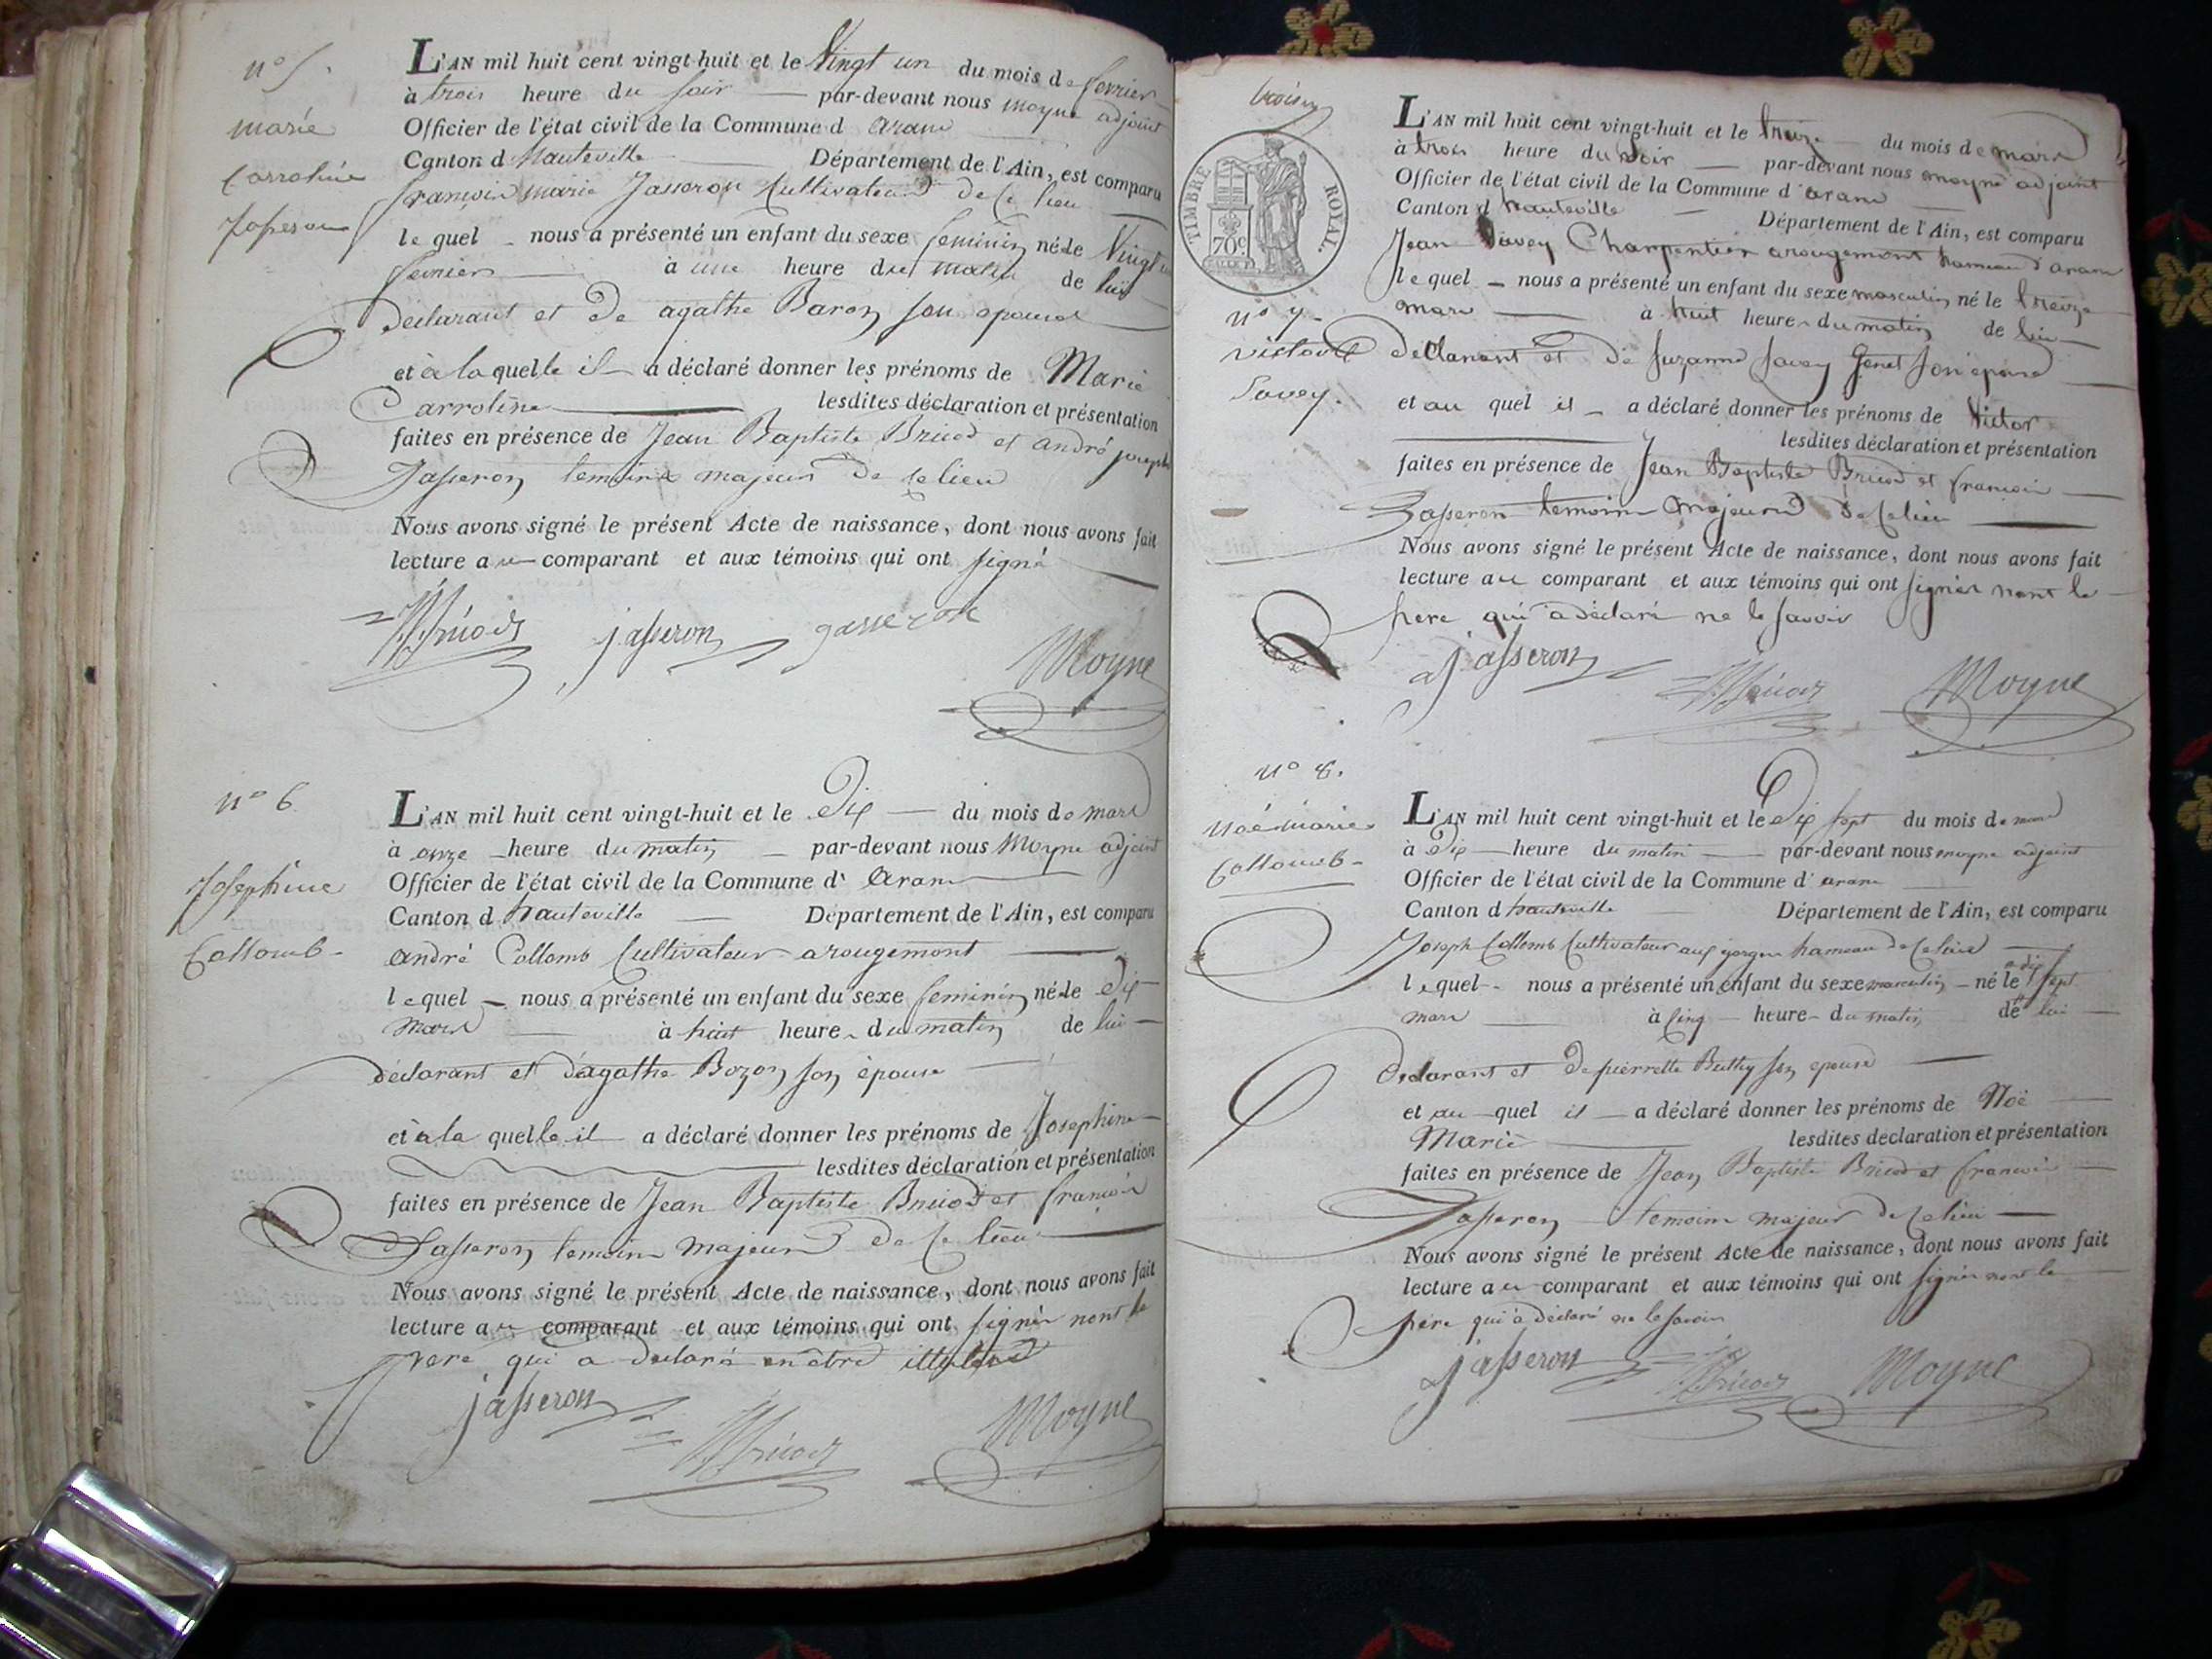 n° 5.
marie
Carroline
Jasseron
L'AN mil huit cent vingt-huit et le Vingt un du mois de fevrier
à trois heure du soir par-devant nous moyne adjoint
Officier de l'état civil de la Commune d aranc
Canton d hauteville Département de l'Ain, est comparu
francois marie Jasseron Cultivateur de Ce lieu
le quel nous a présenté un enfant du sexe feminin né le Vingt
fevrier à une heure du matin de lui
déclarant et de agathe son epouse
et à la quelle il a déclaré donner les prénoms de Marie
Carroline lesdites déclaration et présentation
faites en présence de Jean Baptiste Bricod et andré joseph
Jasseron temoins majeurs de ce lieu
Nous avons signé le présent Acte de naissance, dont nous avons fait
lecture au comparant et aux témoins qui ont signé
Bricod jasseron gasseron
Moyne
n° 6
Josephine
Collomb
L'AN mil huit cent vingt-huit et le Dix du mois de mars
à onze heure du matin par-devant nous Moyne adjoint
Officier de l'état civil de la Commune d' Aranc
Canton d hauteville Département de l'Ain, est comparu
andré Collomb Cultivateur a rougemont
le quel nous a présenté un enfant du sexe feminin né le Dix
mars à huit heure du matin de lui
déclarant et d'agathe Bozon son épouse
et à la quelle il a déclaré donner les prénoms de Josephine
lesdites déclaration et présentation
faites en présence de Jean Baptiste Bricod et francois
Jasseron temoins majeurs de Ce lieu
Nous avons signé le présent Acte de naissance, dont nous avons fait
lecture au comparant et aux témoins qui ont signér nont le
pere qui a declaré en être
jasseron
Bricod Moyne
TIMBRE ROYAL.
70 c
n° 7.
victor
Savey.
L'AN mil huit cent vingt-huit et le treize du mois de mars
à trois heure du soir par-devant nous moyne adjoint
Officier de l'état civil de la Commune d' aranc
Canton d hauteville Département de l'Ain, est comparu
Jean Savey Charpentier a rougemont hameau d'aranc
le quel nous a présenté un enfant du sexe masculin né le treize
mars à huit heure du matin de lui
déclarant et de Suzanne Savey Genet son epouse
et au quel il a déclaré donner les prénoms de Victor
lesdites déclaration et présentation
faites en présence de Jean Baptiste Bricod et francois
Jasseron temoins majeurs de Ce lieu
Nous avons signé le présent Acte de naissance, dont nous avons fait
lecture au comparant et aux témoins qui ont signér nont le
pere qui a déclaré ne le savoir
jasseron
Bricod Moyne
n° 8.
Noé marie
Collomb
L'AN mil huit cent vingt-huit et le Dix sept du mois de mars
à Dix heure du matin par-devant nous moyne adjoint
Officier de l'état civil de la Commune d' aranc
Canton d hauteville Département de l'Ain, est comparu
Joseph Collomb Cultivateur aux hameau de Ce lieu
le quel nous a présenté un enfant du sexe masculin né le dix sept
mars à Cinq heure du matin de lui
declarant et de pierrette son epouse
et au quel il a déclaré donner les prénoms de Noé
Marie lesdites declaration et présentation
faites en présence de Jean Baptiste Bricod et francois
Jasseron temoins majeurs de Ce lieu
Nous avons signé le présent Acte de naissance, dont nous avons fait
lecture au comparant et aux témoins qui ont signér nont le
pere qui à déclaré ne le savoir
jasseron Bricod Moyne